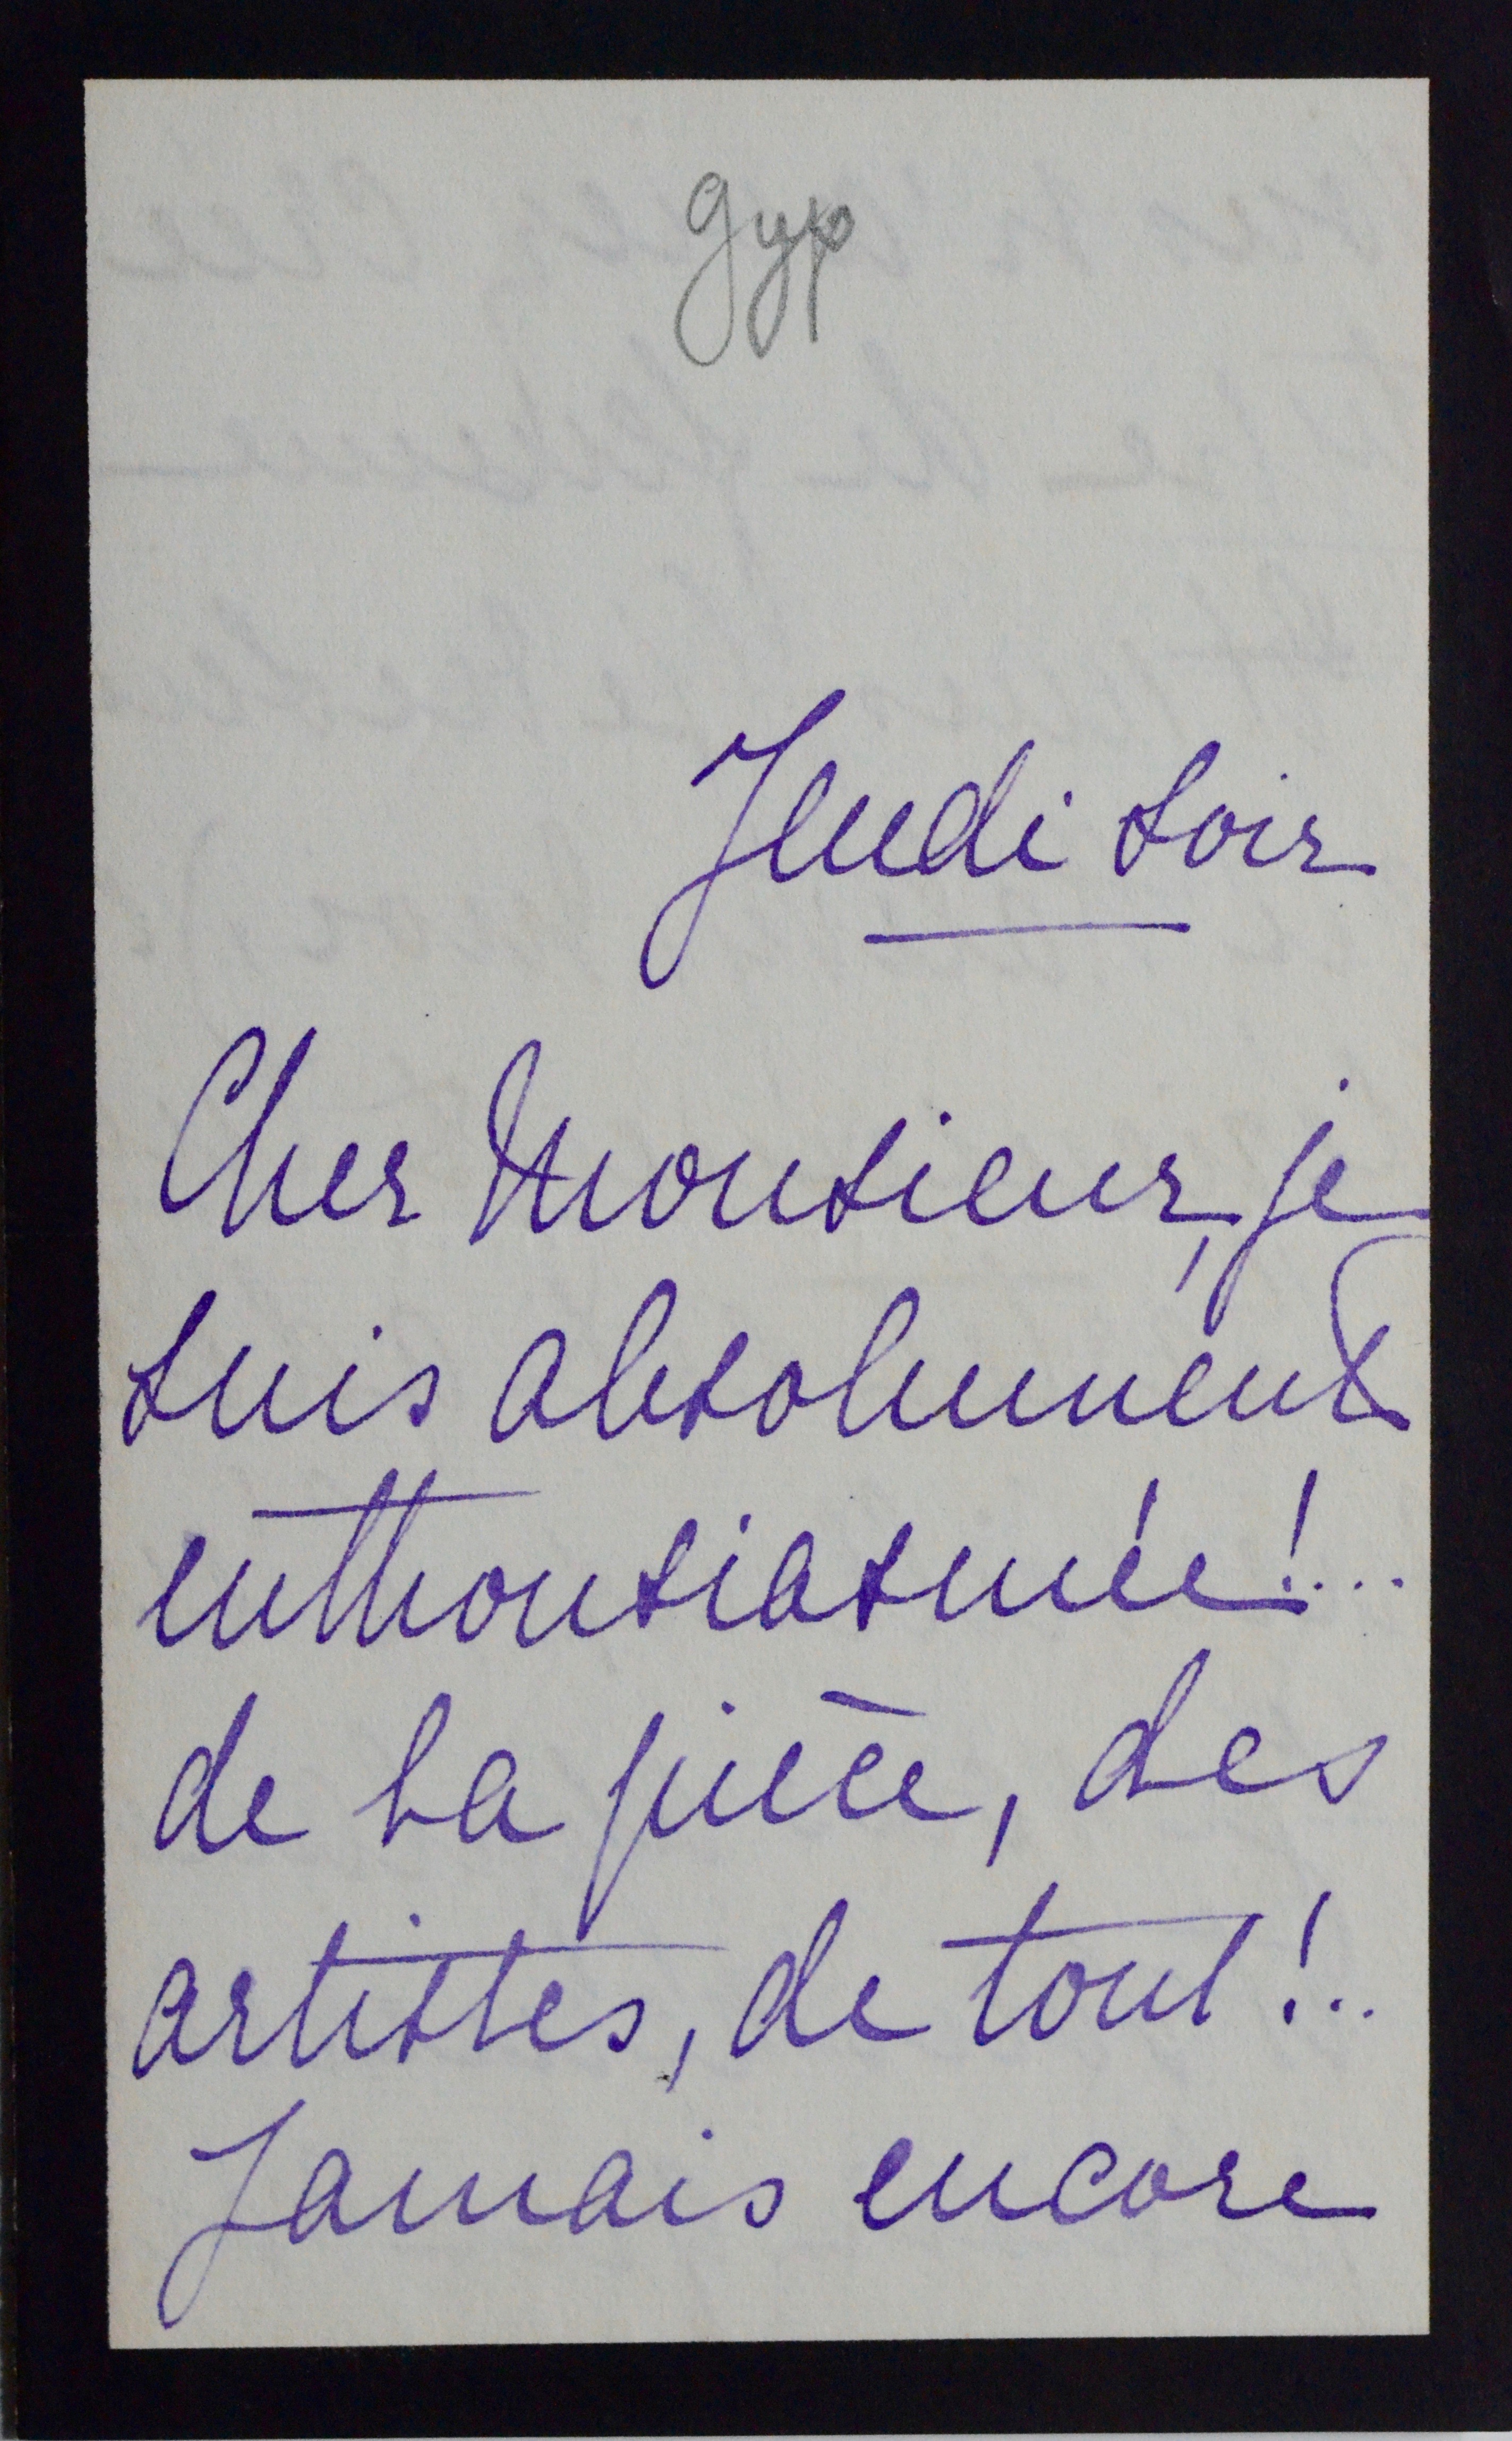 gyp
Jeudi soir
Cher Monsieur, je
suis absolument
enthousiasmée!....
de la pièce, des
artistes, de tout!..
Jamais encore